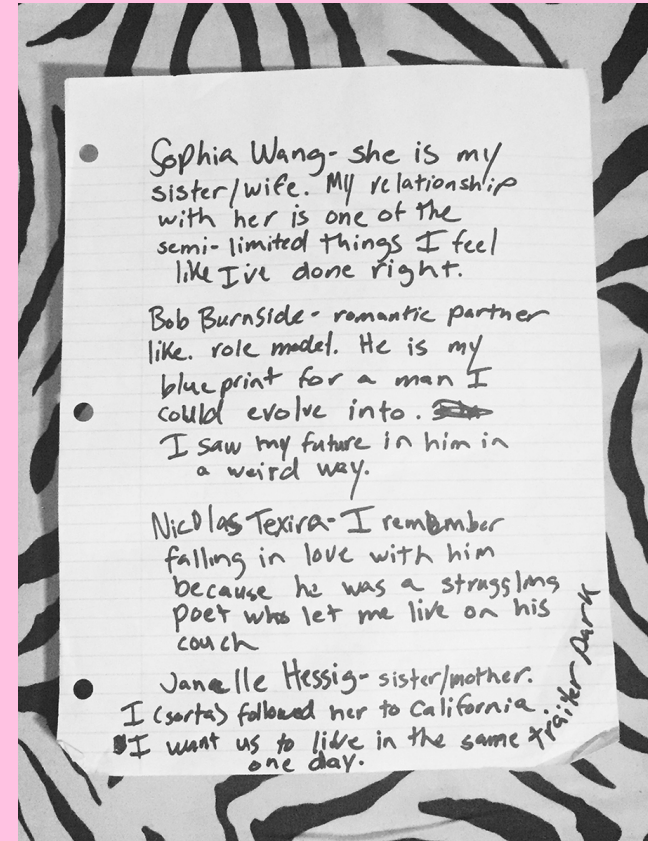 Sophia Wang- she is my
sister/wife. My relationship
with her is one of the
semi-limited things I feel
like I've done right.
Bob Burnside- romantic partner
like. role model. He is my
blueprint for a man I
could evolve into.
I saw my future in him in
a weird way.
Nicolas Texira- I remember
falling in love with him
because he was a struggling
poet who let me live on his
couch
Janelle Hessig- sister/mother.
I (sorta) followed her to California.
I want us to live in the same trailer park
one day.